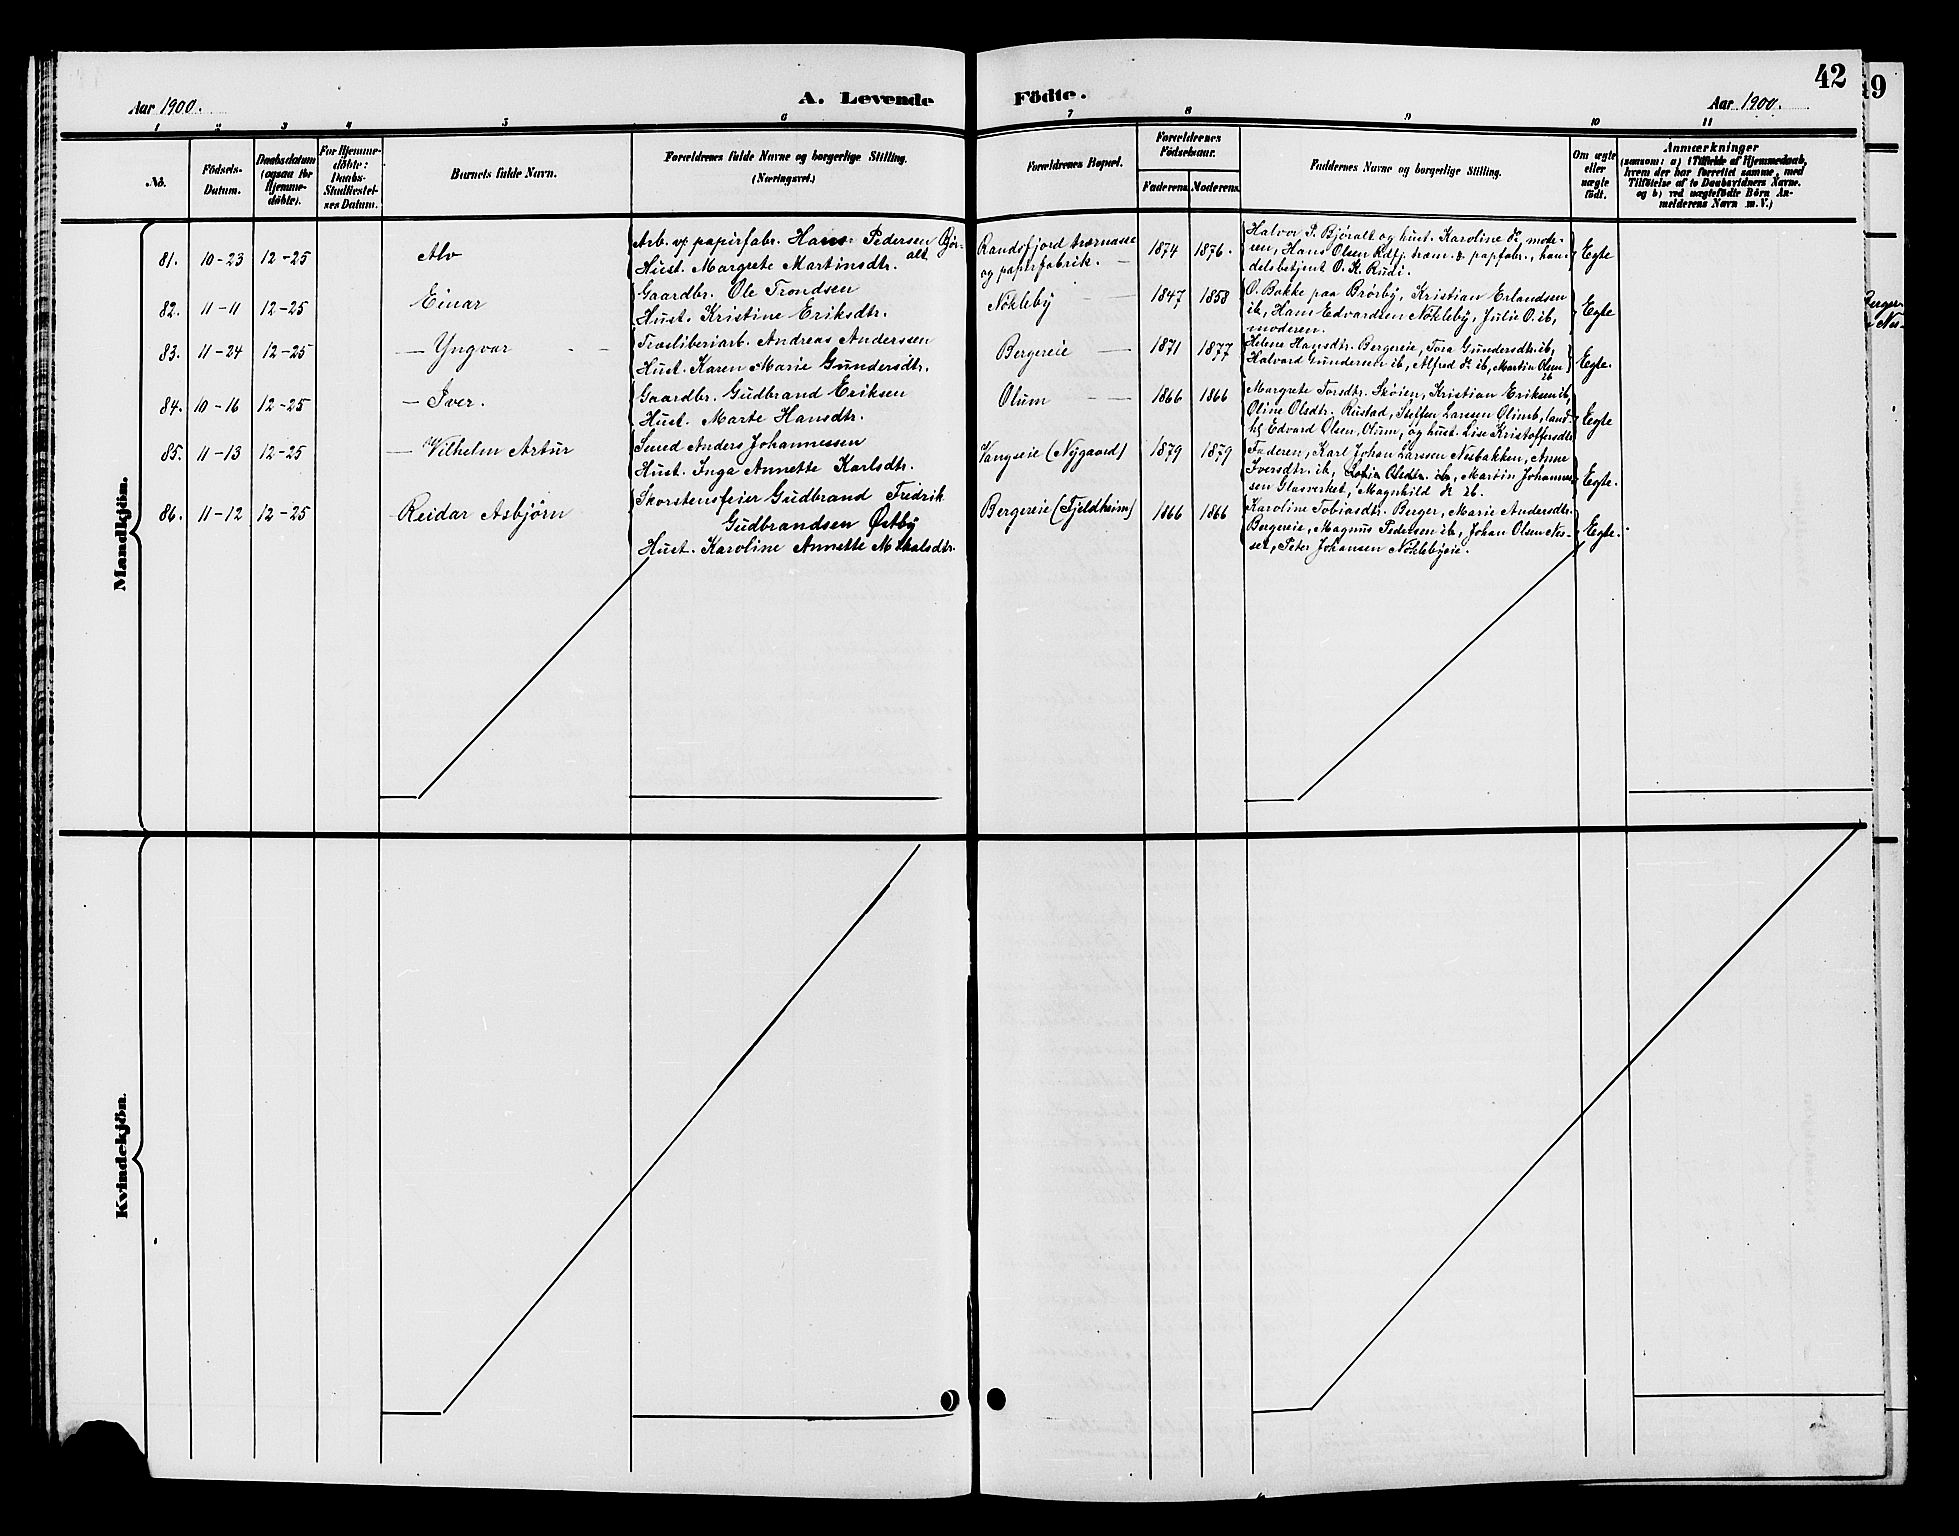 42
9
Aar 1900.
A. Levende
Födte.
Aar 1900.
1 2 3 4 5 6 7 8 9 10 11
No.
Födsels-
Datum.
Daabsdatum
(ogsaa for
Hjemme-
döbte).
For Hjemme-
döbte:
Daabs-
Stadfæstel-
ses Datum.
Barnets fulde Navn.
Forældrenes fulde Navne og borgerlige Stilling.
(Næringsvei.)
Forældrenes Bopæl.
Forældrenes
Födselsaar.
Faderens.
Moderens.
Faddernes Navne og borgerlige Stilling.
Om ægte
eller
uægte
födt.
Anmærkninger
(saasom: a) i Tilfælde af Hjemmedaab,
hvem der har forrettet samme, med
Tilföielse af to Daabsvidners Navne.
og b) ved uægtefödte Börn An-
melderens Navn m. V.)
Mandkjön.
81. 10-23 12-25 Alv
Arb. v. papirfabr. Hans Pedersen Bjør-
alt
Hust. Margrete Martinsdtr.
Randsfjord trærmasse
og papirfabrik. —
1874 1876.
Halvor P. Bjøralt og hust. Karoline Do, mode-
ren, Hans Olsen Rdfj. træm. & papfabr., han-
delsbetjent O. K. Rudi.
Egte
82. 11-11 12-25 Einar
Gaardbr. Ole Trondsen
Hust. Kristine Eriksdtr.
Nøkleby
1847 1858
O. Bakke paa Brørby, Kristian Erlandsen
ib, Hans Edvardsen Nøkleby, Julie O. ib,
moderen.
Egte
83. 11-24 12-25 — Yngvar
Træsliberiarb. Andreas Anderssen
Hust. Karen Marie Gundersdtr.
Bergereie
1871 1877
Helene Hansdtr. Bergereie, Tora Gundersdtr. ib,
Halvard Gundersen ib, Alfred Do ib, Martin Olsen
ib
Egte.
84. 10-16 12-25 — Iver.
Gaardbr. Gudbrand Eriksen
Hust. Marte Hansdtr.
Olum
1866 1866
Margrete Torsdtr. Skøien, Kristian Eriksen ib,
Oline Olsdtr. Rustad, Steffen Larsen Olimb, land-
hl. Edvard Olsen, Olum, og hust. Lise Kristoffersdtr.
Egte
85. 11-13 12-25 — Vilhelm Artur
Smed Anders Johannessen
Hust. Inga Annette Karlsdtr.
Vangseie (Nygaard)
1879 1879
Faderen, Karl Johan Larssen Nesbakken, Anne
Iversdtr. ib, Sofie Olsdtr. ib, Martin Johannes-
sen Glasverket, Magnhild Do ib.
Egte.
86. 11-12 12-25 Reidar Asbjørn
Skorstensfeier Gudbrand Fredrik
Gudbrandsen Østby
Hust. Karoline Annette Mikalsdtr.
Bergereie (Fjeldheim)
1866 1866
Karoline Tobiasdtr. Berger, Marie Andersdtr.
Bergereie, Magnus Pedersen ib, Johan Olsen Nes-
set, Peter Johansen Nøklebyeie.
Egte.
Kvindekjön.